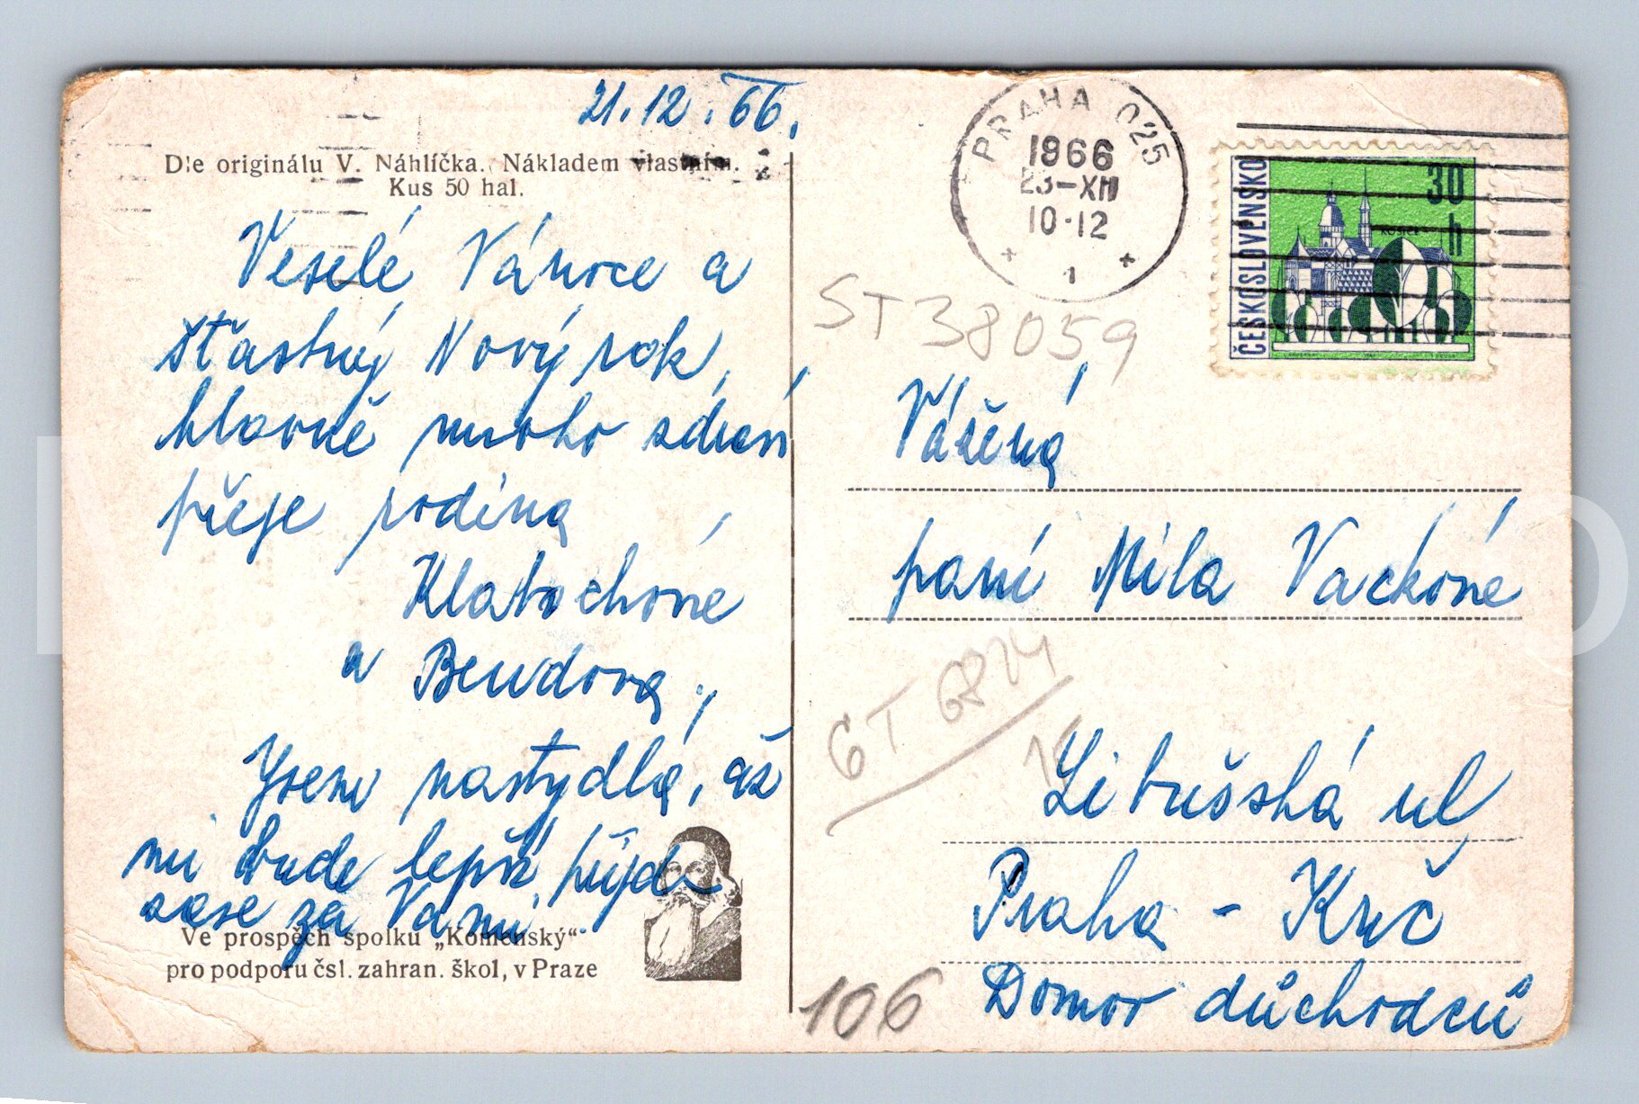 21.12.66.
Dle originálu V. Náhlíčka. Nákladem vlastním.
Kus 50 hal.
Veselé Vánoce a
šťastný Nový rok,
hlavně mnoho zdraví
přeje rodina
a Bendova,
Jsem nastydlá, až
mi bude lepší, přijdu
zase za Vámi.
Ve prospěch spolku „Komenský“
pro podporu čsl. zahran. škol, v Praze
PRAHA 025
1966
23-XII
10-12
1
ČESKOSLOVENSKO
30
h
KOŠICE
ST38059
Vážená
paní Mila Vacková
ST 6824
Libušská ul
Praha - Krč
Domov důchodců
106